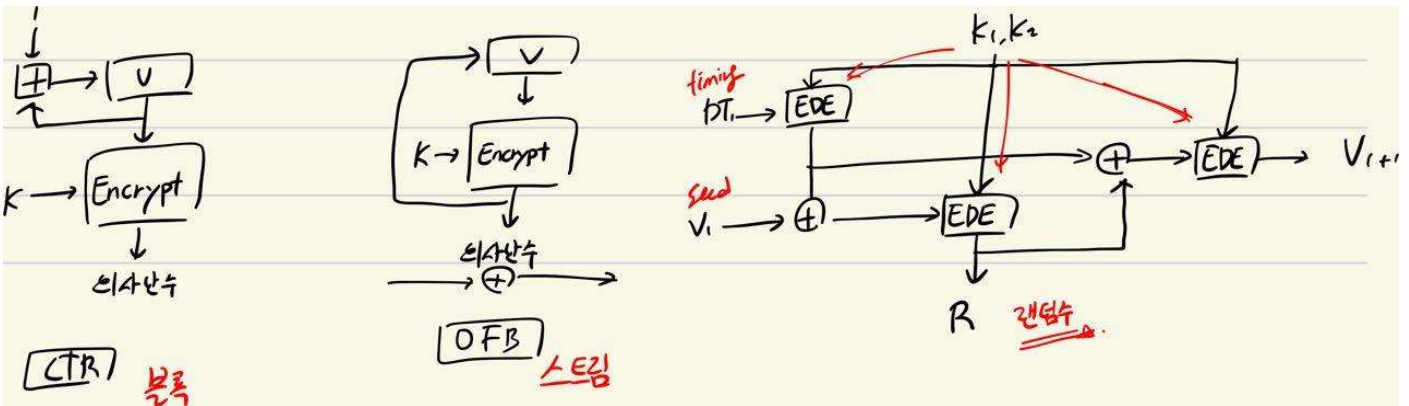 1
+ V
K Encrypt
의사난수
CTR 블록
V
K Encrypt
의사난수
+
OFB 스트림
K1, K2
timing
DT1 EDE
+ EDE Vi+1
seed
V1 + EDE
R 랜덤수